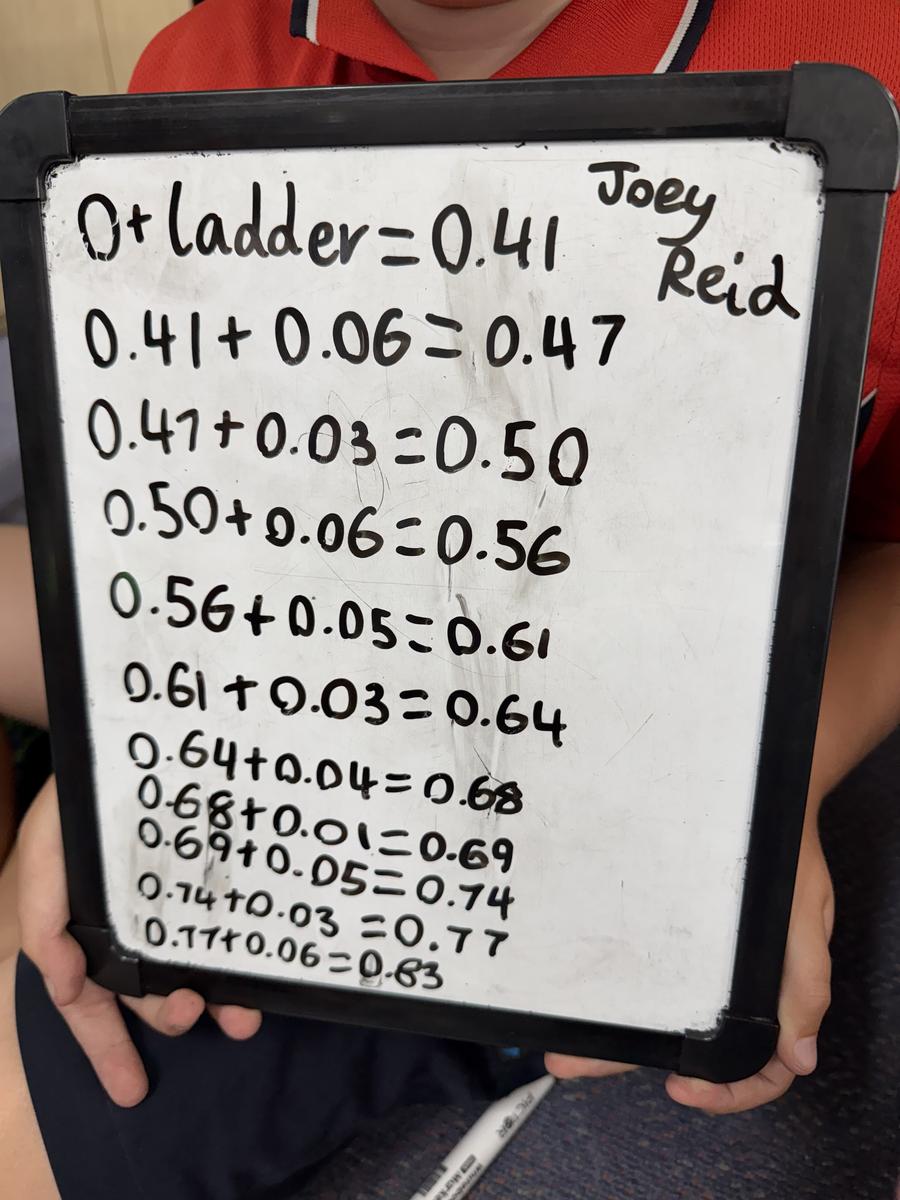 Joey
Reid
0+ladder=0.41
0.41+0.06=0.47
0.47+0.03=0.50
0.50+0.06=0.56
0.56+0.05=0.61
0.61+0.03=0.64
0.64+0.04=0.68
0.68+0.01=0.69
0.69+0.05=0.74
0.74+0.03=0.77
0.77+0.06=0.83